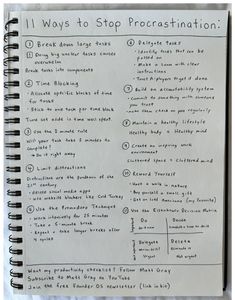 11 Ways to Stop Procrastination:
① Break down large tasks
Doing big unclear tasks causes
overwhelm
Break tasks into components
② Time Blocking
Allocate specific blocks of time
for tasks
Stick to one task per time block
Turn set aside in time well spent
③ Use the 2 minute rule
Will your task take 2 minutes to
complete?
Do it right away
④ Limit distractions
Distractions are the pandemic of the
21st century
Avoid social media apps
Use website blockers like Cold Turkey
⑤ Use the Pomodoro Technique
Work intensively for 25 minutes
Take a 5-minute break
Repeat + take longer breaks after
4 cycles
⑥ Delegate Tasks
Identify tasks that can be
passed on
Make a Loom with clear
instructions
Trust + prepare to get it done
⑦ Build an accountability system
Commit to doing something with someone
you trust
Have them check on you regularly
⑧ Maintain a healthy lifestyle
Healthy body = Healthy mind
⑨ Create an inspiring work
environment
Cluttered space = Cluttered mind
⑩ Reward Yourself
Have a walk in nature
Buy yourself a small gift
⑪ Use the Eisenhower Decision Matrix
Do
Decide
Delegate
Delete
Want my productivity checklist? Follow Matt Gray
Subscribe to Matt Gray on YouTube
Join the free Founder OS newsletter (link in bio)